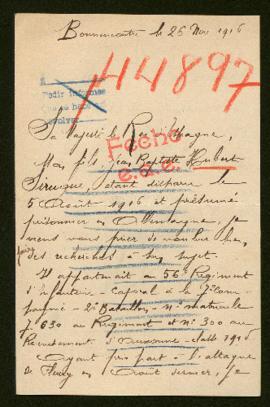 Bonnencontre le 26 Nov 1916
44897
A
Pedir informes
Fecho
Sa Majesté le Roi d'Espagne,
Mon fils, Jean Baptiste Hubert
étant disparu le
5 Août 1916 et présumé
prisonnier en Allemagne, je
viens vous prier de vouloir bien
faire
des recherches à son sujet.
Il appartenait au 56e Régiment
d'Infanterie Caporal à la 7e Com-
pagnie - 2e Bataillon - No matricule
7630 au Régiment et no 300 au
Recrutement d'Auxonne - classe 1916
Ayant pris part à l'attaque
de Fleury en Août dernier, je